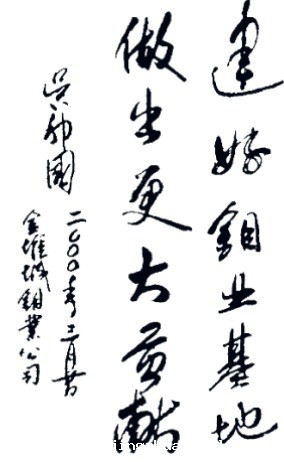 建好钼业基地
做出更大贡献
吴邦國
二〇〇〇年十二月廿
金堆城鉬業公司